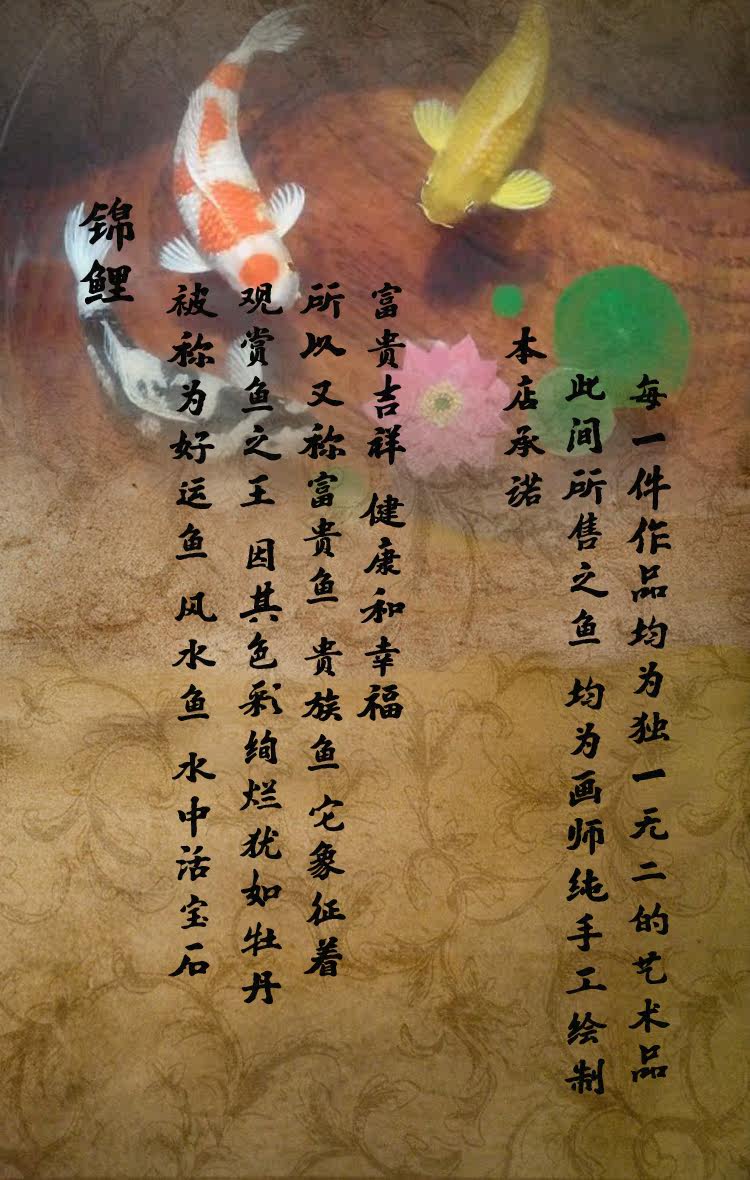 锦鲤
被称为好运鱼 风水鱼 水中活宝石
观赏鱼之王 因其色彩绚烂犹如牡丹
所以又称富贵鱼 贵族鱼 它象征着
富贵吉祥 健康和幸福
本店承诺
此间所售之鱼 均为画师纯手工绘制
每一件作品均为独一无二的艺术品